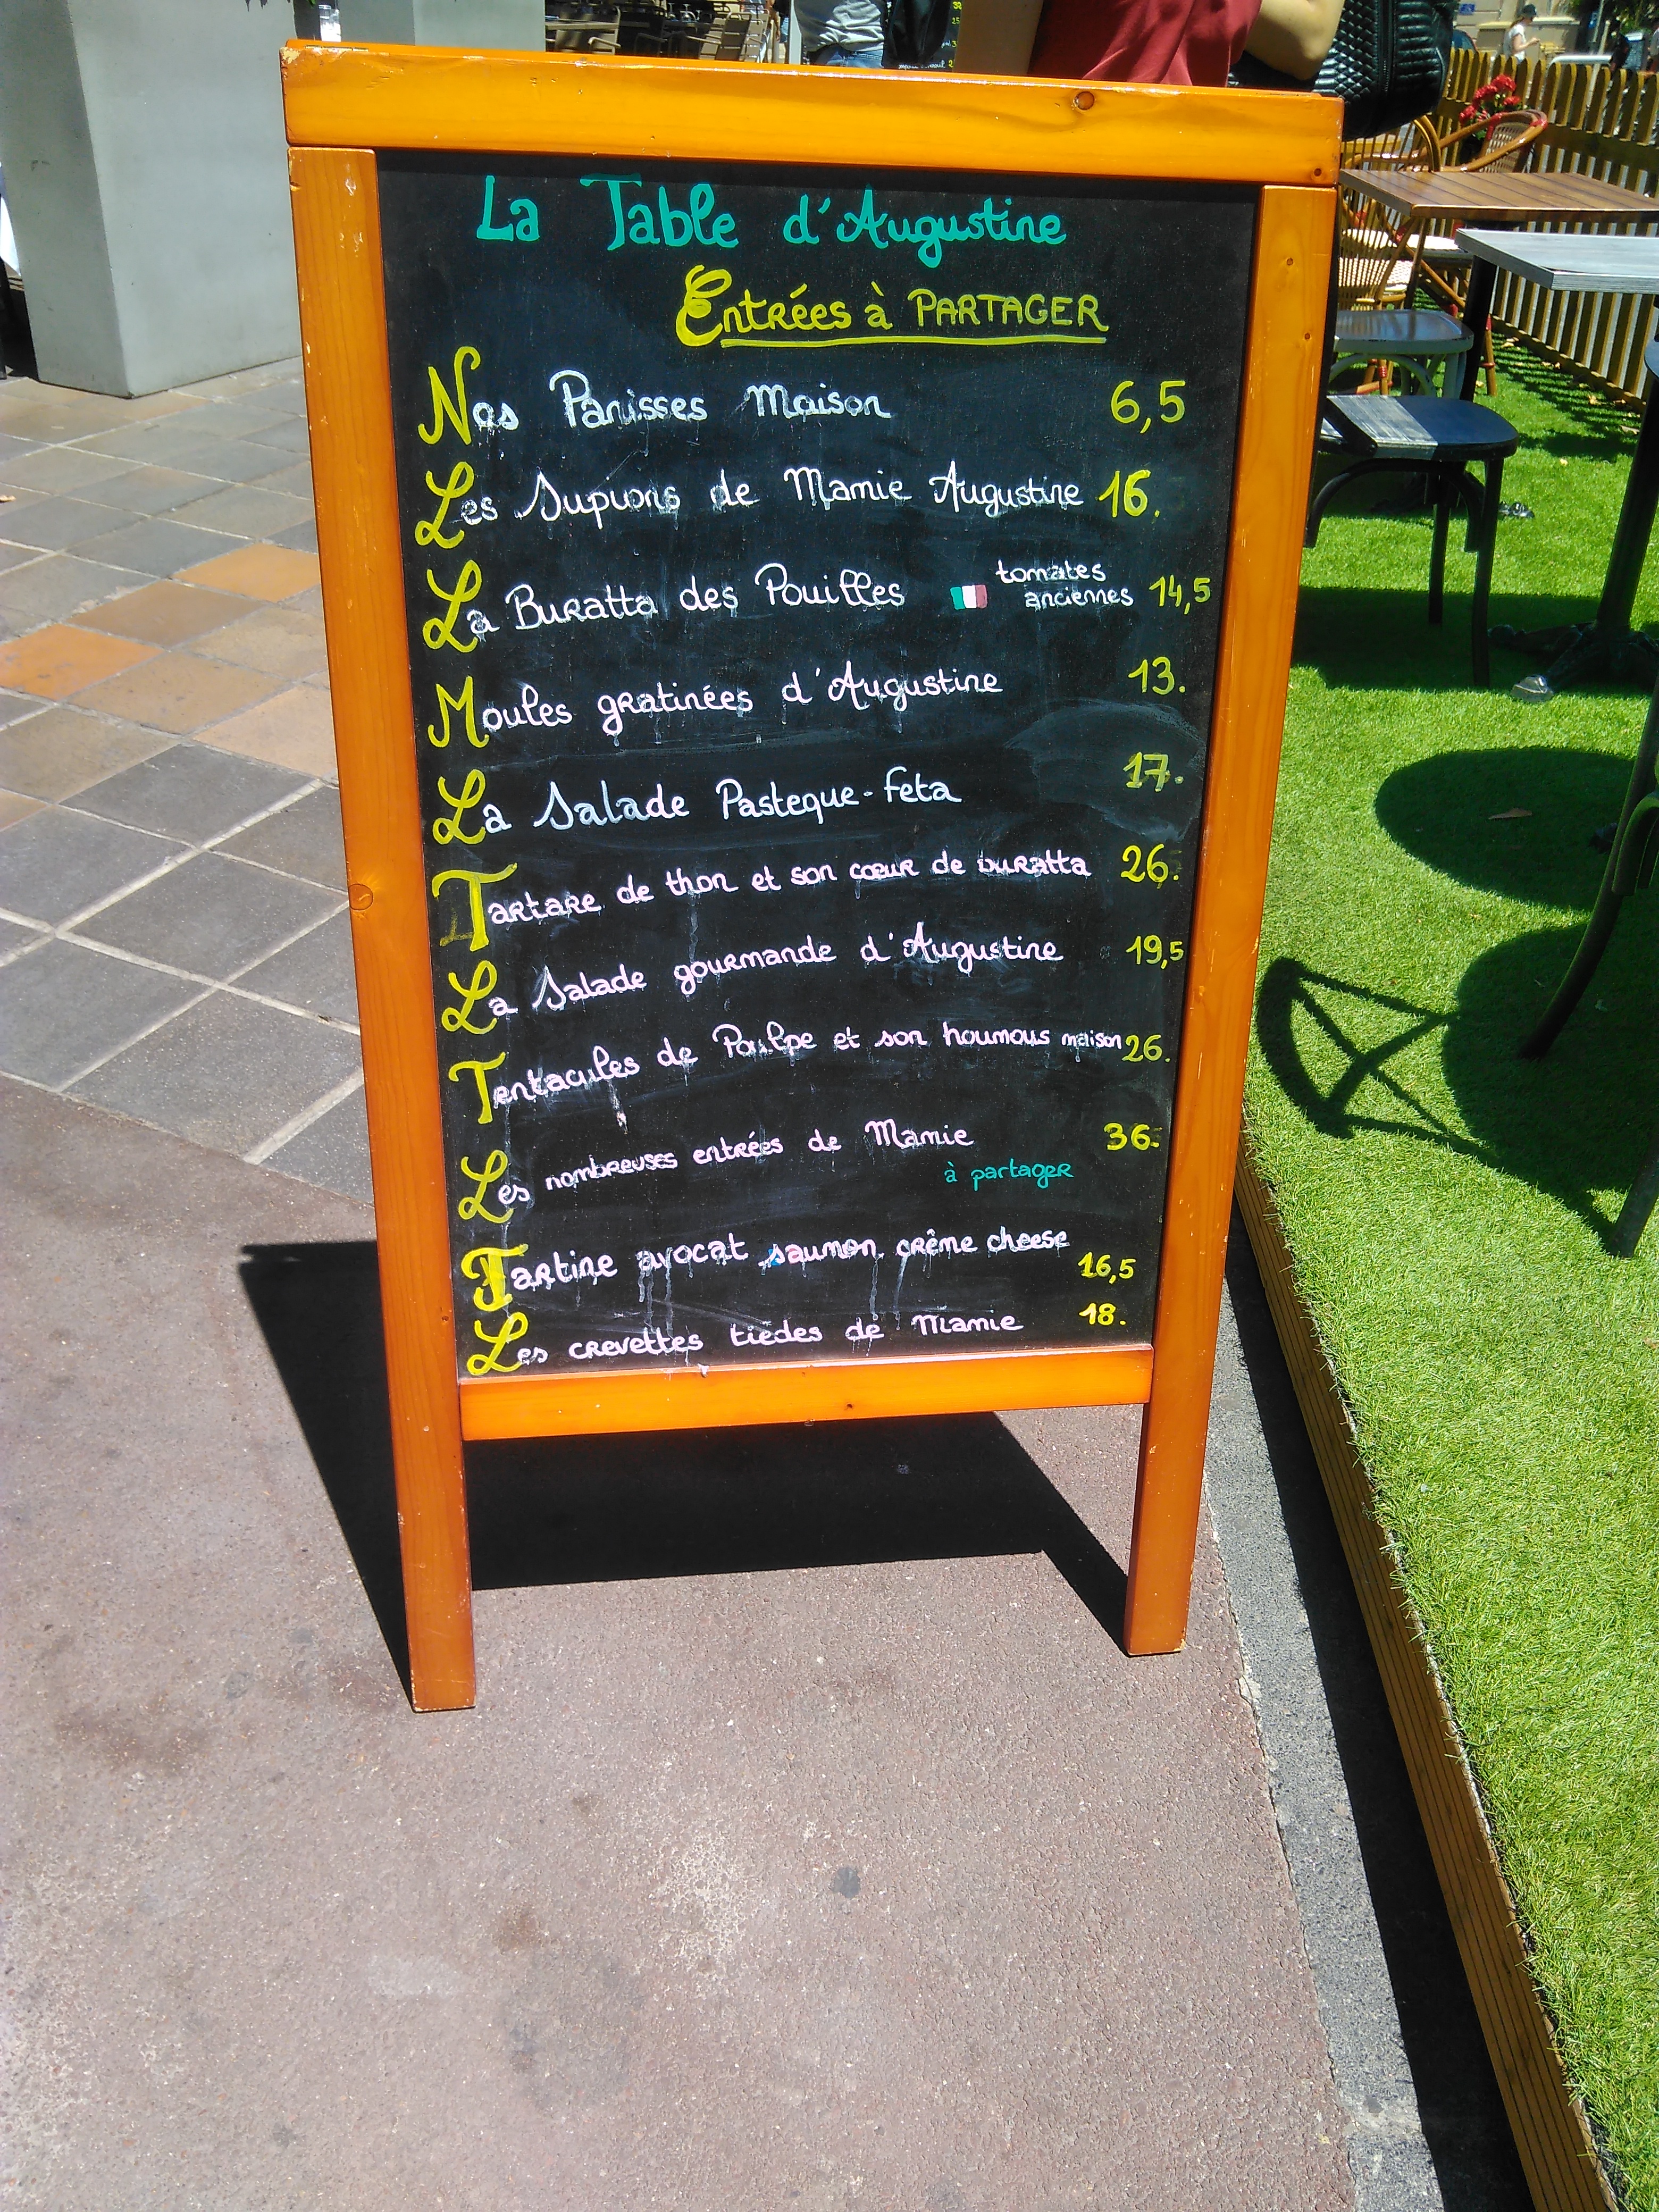 La Table d'Augustine
Entrées à PARTAGER
Nos Panisses Maison 6,5
Les Supions de Mamie Augustine 16.
La Buratta des Pouilles tomates anciennes 14,5
Moules gratinées d'Augustine 13.
La Salade Pasteque-feta 17.
Tartare de thon et son cœur de buratta 26.
La Salade gourmande d'Augustine 19,5
Tentacules de Poulpe et son houmous maison 26.
Les nombreuses entrées de Mamie 36.
à partager
Tartine avocat saumon crême cheese 16,5
Les crevettes tiedes de Mamie 18.